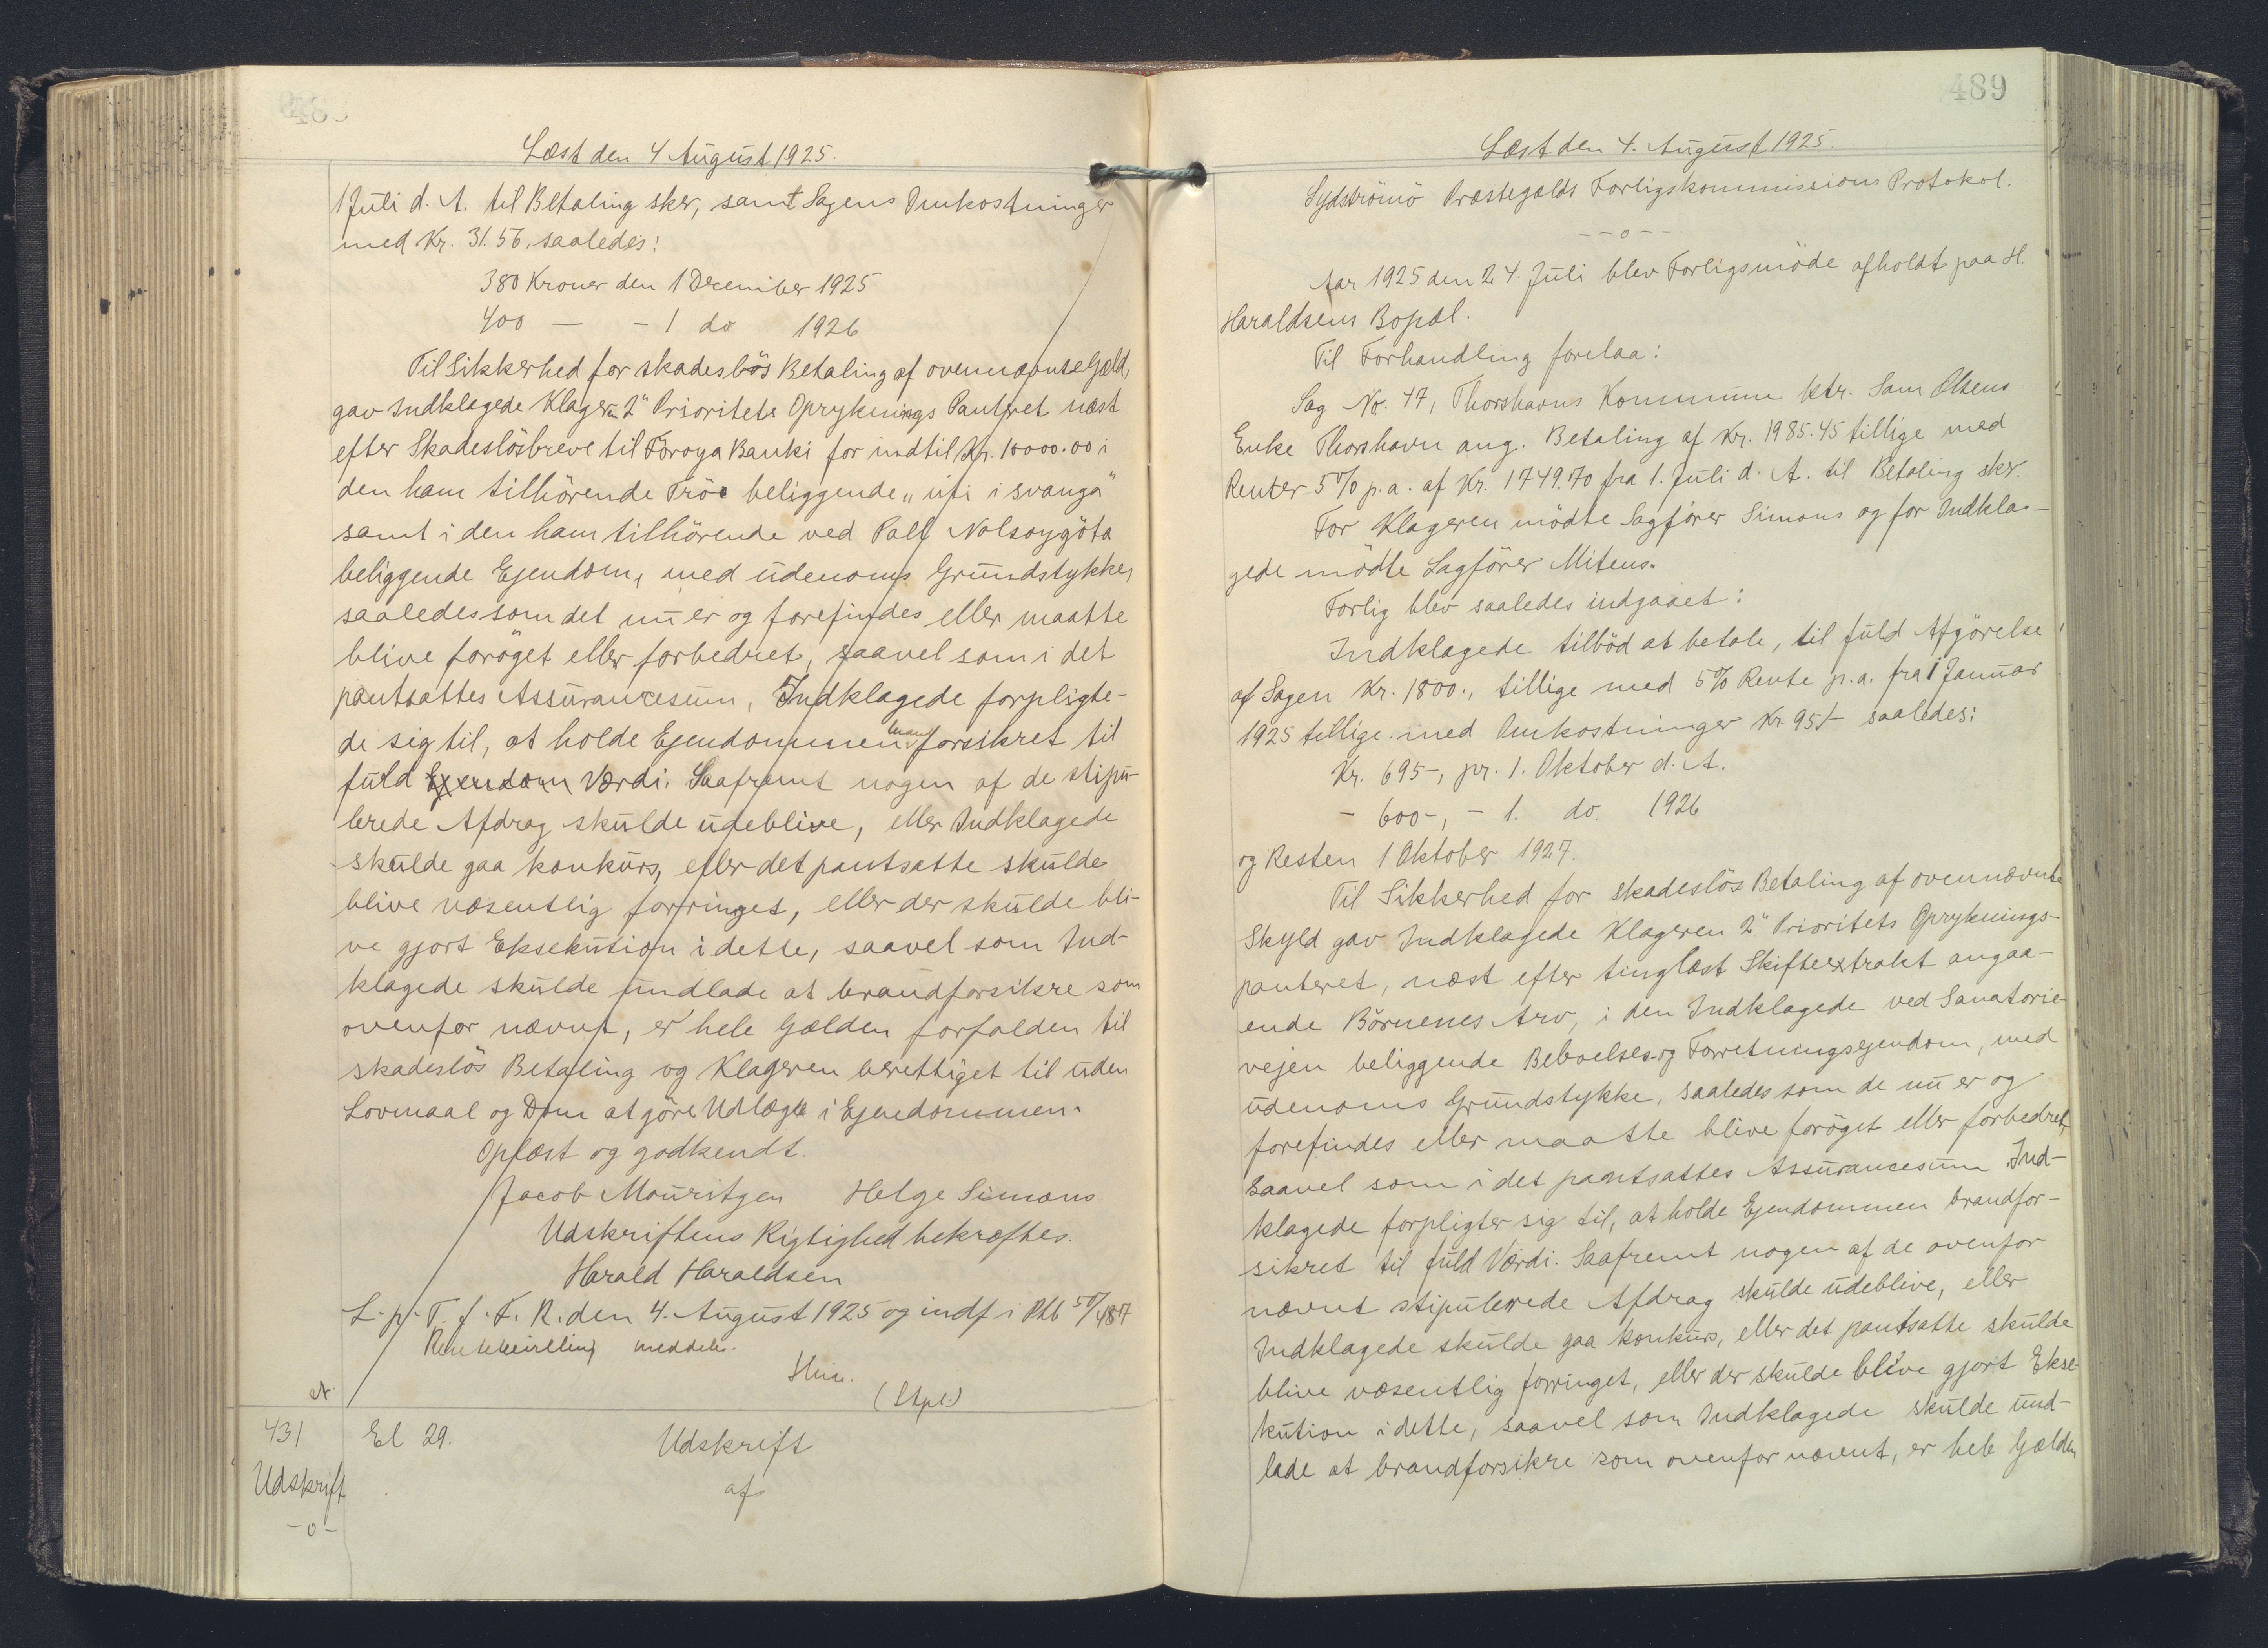 48
Læst den 4 August 1925.
1 Juli d. A. til Betaling sker, samt Sagens Omkostninger
med Kr. 31.56, saaledes:
380 Kroner den 1 December 1925
400 — - 1 do 1926
Til Sikkerhed for skadeslös Betaling af ovennævnte Gæld,
gav Indklagede Klageren 2" Prioritets Opryknings Panteret næst
efter Skadeslösbreve til Föroya Banki for indtil Kr. 10000.00 i
den ham tilhörende Tröe beliggende „úti i svanga"
samt i den ham tilhörende ved Pall Nolsoygöta
beliggende Ejendom, med udenoms Grundstykker,
saaledes som det nu er og forefindes eller maatte
blive foröget eller forbedret, saavel som i det
pantsattes Assurancesum, Indklagede forpligte-
de sig til, at holde Ejendommen brandforsikret til
fuld Ejendom Værdi. Saafremt nogen af de stipu-
lerede Afdrag skulde udeblive, eller Indklagede
skulde gaa konkurs, eller det pantsatte skulde
blive væsentlig forringet, eller der skulde bli-
ve gjort Eksekution i dette, saavel som Ind-
klagede skulde undlade at brandforsikre som
ovenfor nævnt, er hele Gælden forfalden til
skadeslös Betaling og Klageren berettiget til uden
Lovmaal og Dom at göre Udlæg i Ejendommen.
Oplæst og godkendt.
Jacob Mouritzen Helge Simons
Udskriftens Rigtighed bekræftes.
Harald Haraldsen
L. p. T. f. F. R. den 4. August 1925 og indf i Ptb 57/487
Rentebevilling meddelt.
(Stpl.)
431 El 29. Udskrift
Udskrift af
-o-
489
Læst den 4. August 1925.
Sydströmö Præstegælds Forligskommissions Protokol.
--o--
Aar 1925 den 24. Juli blev Forligsmöde afholdt paa H.
Haraldsens Bopæl.
Til Forhandling forelaa:
Sag No. 47, Thorshavns Kommune ktr. Sam Olsens
Enke Thorshavn ang. Betaling af Kr. 1985.45 tillige med
Renter 5% p.a. af Kr. 1749.70 fra 1. Juli d. A. til Betaling sker.
For Klageren mödte Sagförer Simons og for Indkla-
gede mödte Sagförer Mitens.
Forlig blev saaledes indgaaet:
Indklagede tilböd at betale, til fuld Afgörelse
af Sagen Kr. 1800., tillige med 5% Rente p.a. fra 1 Januar
1925 tillige med Omkostninger Kr. 95/- saaledes:
Kr. 695-, pr. 1. Oktober d. A.
- 600-, - 1. do. 1926
og Resten 1 Oktober 1927.
Til Sikkerhed for skadeslös Betaling af ovennævnte
Skyld gav Indklagede Klageren 2" Prioritets Opryknings-
panteret, næst efter tinglæst Skifteextrakt angaa-
ende Börnenes Arv, i den Indklagede ved Sanatorie-
vejen beliggende Beboelses-og Forretningsejendom, med
udenoms Grundstykke, saaledes som de nu er og
forefindes eller maatte blive foröget eller forbedret,
saavel som i det pantsattes Assurancesum Ind-
klagede forpligter sig til, at holde Ejendommen brandfor-
sikret til fuld Værdi. Saafremt nogen af de ovenfor
nævnt stipulerede Afdrag skulde udeblive, eller
Indklagede skulde gaa konkurs, eller det pantsatte skulde
blive væsentlig forringet, eller der skulde blive gjort Ekse-
kution i dette, saavel som Indklagede skulde und-
lade at brandforsikre som ovenfor nævnt, er hele Gælden